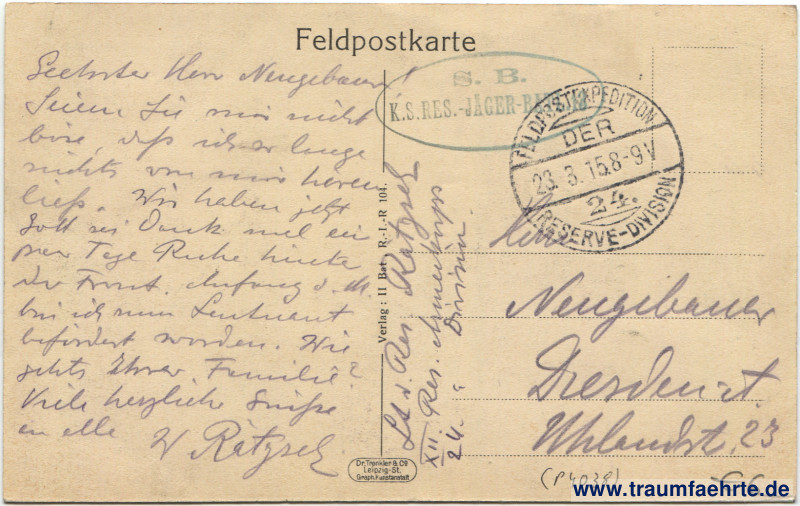 Feldpostkarte
Geehrter Herr Neugebauer!
Seien Sie mir nicht
böse, daß ich so lange
nichts von mir hören
ließ. Wir haben jetzt
Gott sei Dank mal ein
paar Tage Ruhe hinter
der Front. Anfang d. M.
bin ich zum Leutnant
befördert worden. Wie
gehts Ihrer Familie?
Viele herzliche Grüße
an alle W Rätzsch
Verlag: II Bat. R.-I.-R 104.
Dr. Trenkler & Co
Leipzig-St.
Graph. Kunstanstalt
Lt d. Res. Rätzsch
XII. Res. Armeekorps
24. " Division.
S. B.
K.S.RES.-JÄGER-BATL.
FELDPOSTEXPEDITION
DER
23.3.15.8-9V
24.
RESERVE-DIVISION
Herrn
Neugebauer
Dresden-A
Uhlandstr. 23
(P4038)
www.traumfaehrte.de